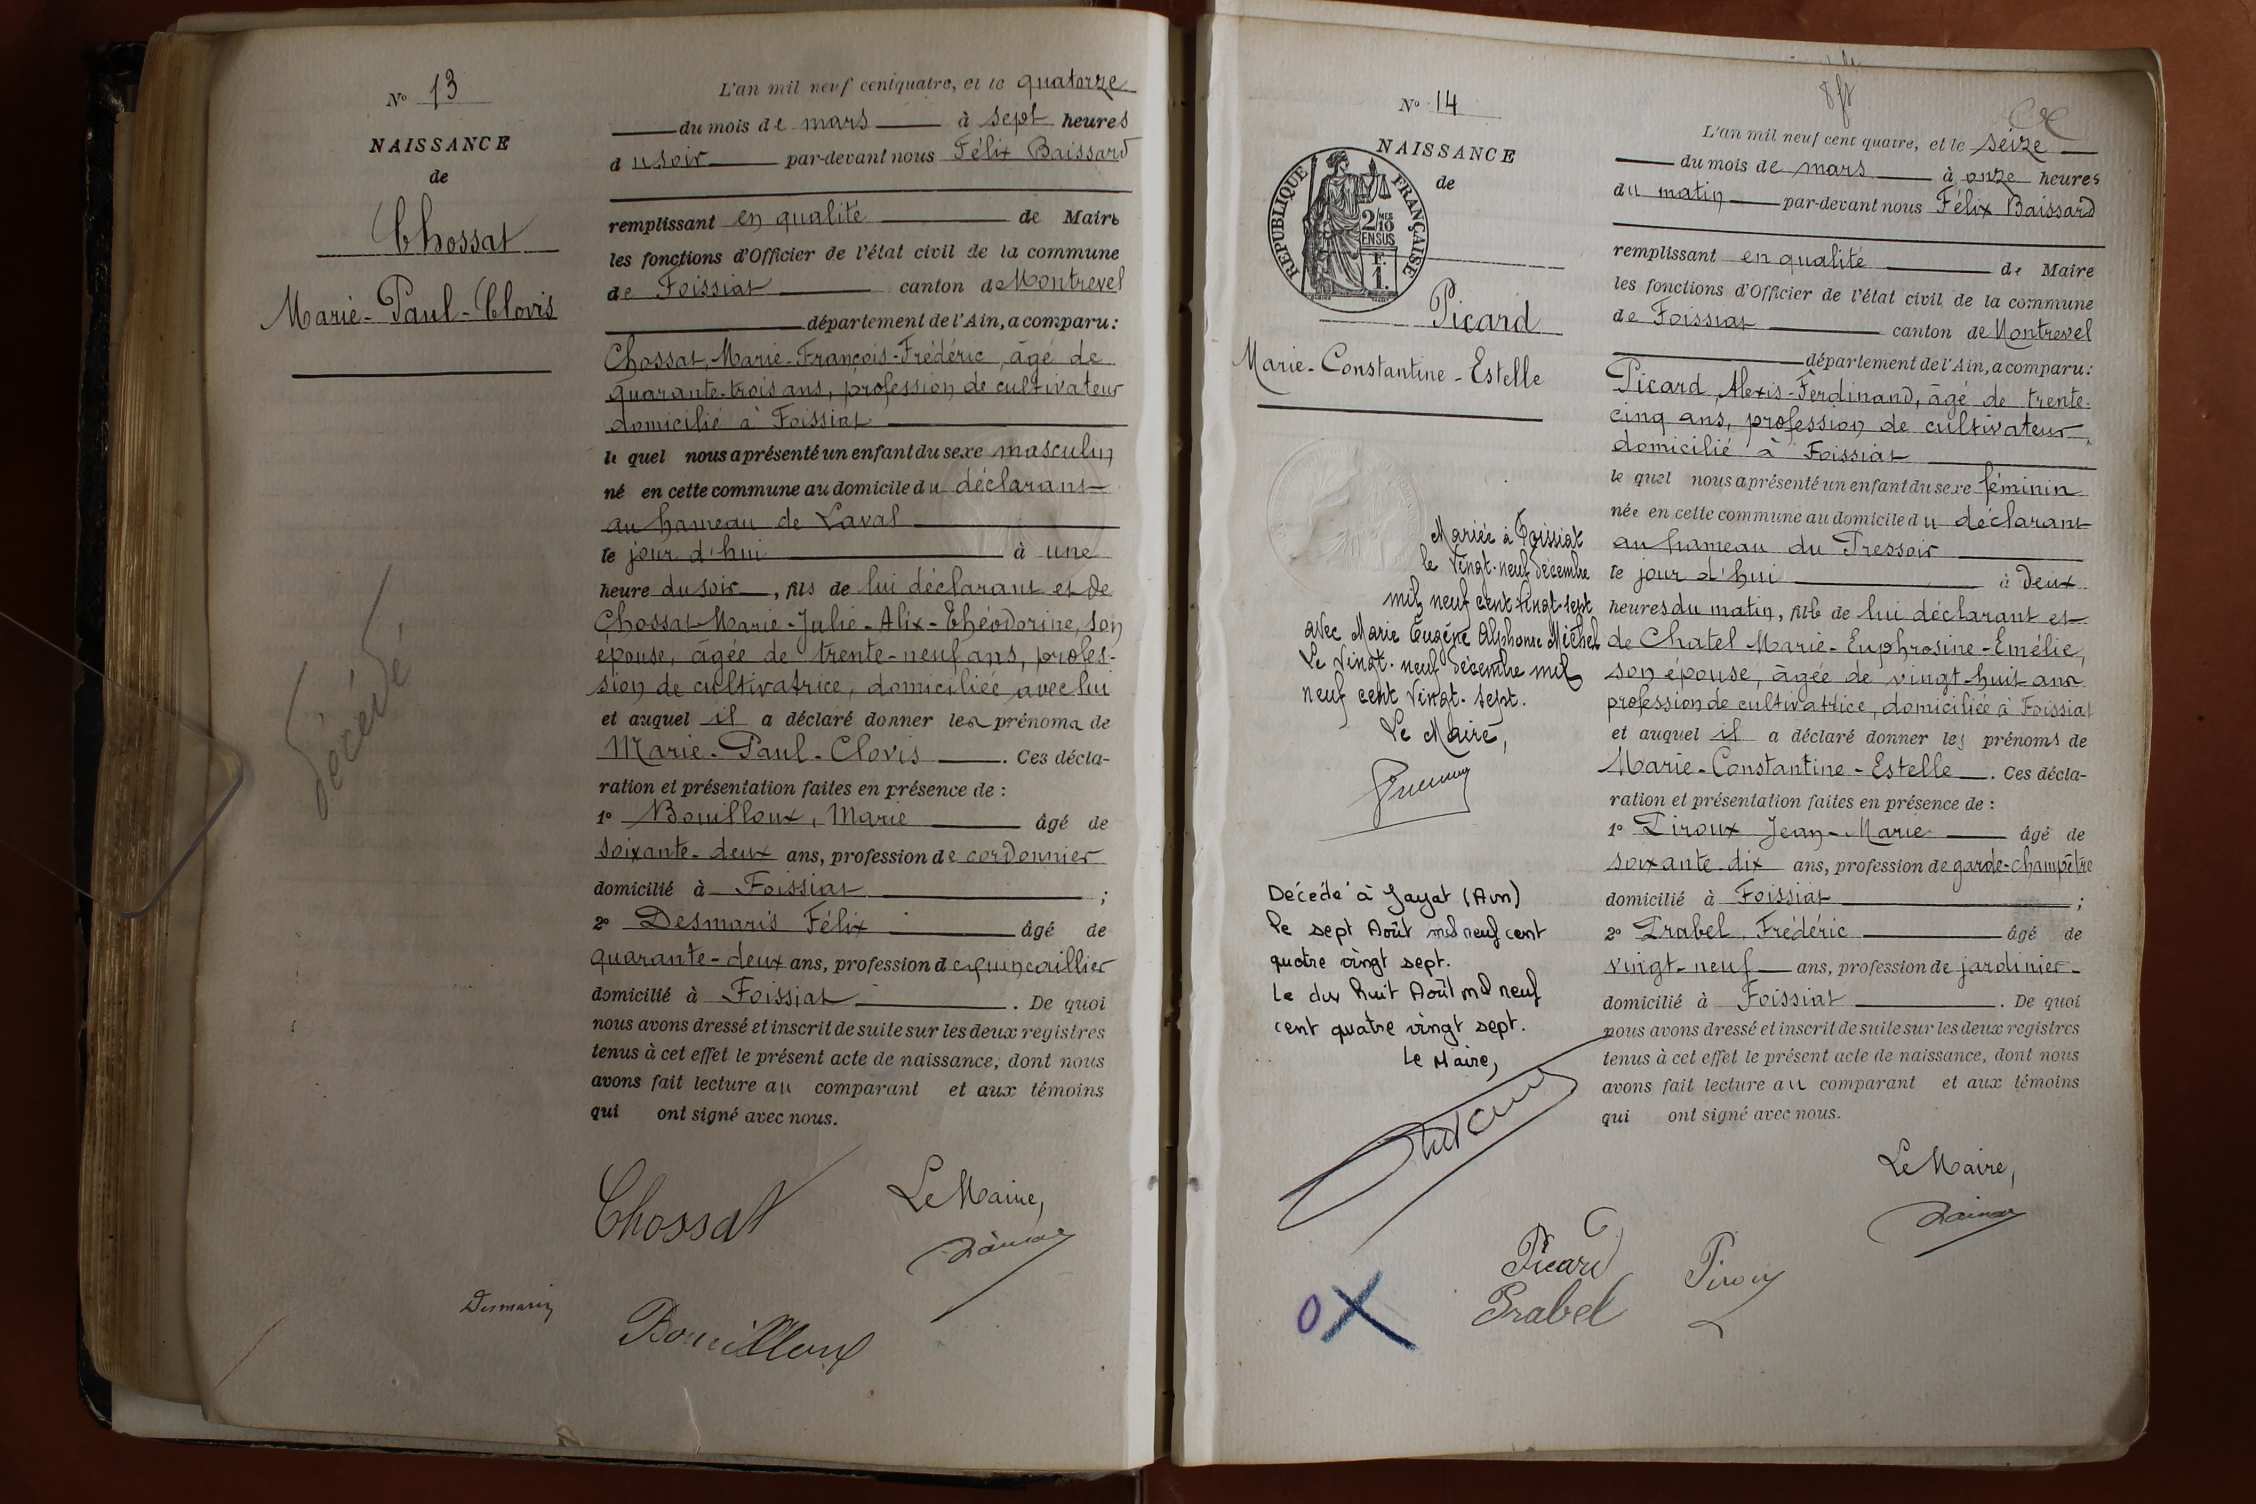 N° 13
NAISSANCE
de
Chossat
Marie-Paul-Clovis
décédé
L'an mil neuf cent quatre, et le quatorze
du mois de mars à sept heures
du soir par-devant nous Félix Baissard
remplissant en qualité de Maire
les fonctions d'Officier de l'état civil de la commune
de Foissiat canton de Montrevel
département de l'Ain, a comparu :
Chossat, Marie-François-Frédéric, âgé de
quarante-trois ans, profession de cultivateur
domicilié à Foissiat
le quel nous a présenté un enfant du sexe masculin
né en cette commune au domicile du déclarant
au hameau de Laval
le jour d'hui à une
heure du soir, fils de lui déclarant et de
Chossat Marie-Julie-Alix-Théodorine, son
épouse, âgée de trente-neuf ans, profes-
sion de cultivatrice, domiciliée avec lui
et auquel il a déclaré donner les prénoms de
Marie-Paul-Clovis. Ces décla-
ration et présentation faites en présence de :
1° Bouilloux, Marie âgé de
soixante-deux ans, profession de cordonnier
domicilié à Foissiat ;
2° Desmaris Félix âgé de
quarante-deux ans, profession de quincaillier
domicilié à Foissiat. De quoi
nous avons dressé et inscrit de suite sur les deux registres
tenus à cet effet le présent acte de naissance, dont nous
avons fait lecture au comparant et aux témoins
qui ont signé avec nous.
Chossat
Le Maire,
Desmaris
Bouilloux
N° 14
NAISSANCE
de
RÉPUBLIQUE FRANÇAISE
2/10 MES
EN SUS
F.
1.
Picard
Marie-Constantine-Estelle
Mariée à Foissiat
le vingt-neuf décembre
mil neuf cent vingt-sept
avec Marie Eugène Alphonse Michel
Le vingt-neuf décembre mil
neuf cent vingt-sept.
Le Maire,
Décédé à Jayat (Ain)
le sept Août mil neuf cent
quatre vingt sept.
le dix huit Août mil neuf
cent quatre vingt sept.
le Maire,
L'an mil neuf cent quatre, et le seize
du mois de mars à onze heures
du matin par-devant nous Félix Baissard
remplissant en qualité de Maire
les fonctions d'Officier de l'état civil de la commune
de Foissiat canton de Montrevel
département de l'Ain, a comparu :
Picard, Alexis-Ferdinand, âgé de trente-
cinq ans, profession de cultivateur,
domicilié à Foissiat
le quel nous a présenté un enfant du sexe féminin
née en cette commune au domicile du déclarant
au hameau du Pressoir
le jour d'hui à deux
heures du matin, fille de lui déclarant et
de Chatel Marie-Euphrosine-Emélie,
son épouse, âgée de vingt-huit ans
profession de cultivatrice, domiciliée à Foissiat
et auquel il a déclaré donner les prénoms de
Marie-Constantine-Estelle. Ces décla-
ration et présentation faites en présence de :
1° Piroux Jean-Marie âgé de
soixante-dix ans, profession de garde-champêtre
domicilié à Foissiat ;
2° Prabel, Frédéric âgé de
vingt-neuf ans, profession de jardinier
domicilié à Foissiat. De quoi
nous avons dressé et inscrit de suite sur les deux registres
tenus à cet effet le présent acte de naissance, dont nous
avons fait lecture au comparant et aux témoins
qui ont signé avec nous.
Le Maire,
Picard
Piroux
Prabel
OX